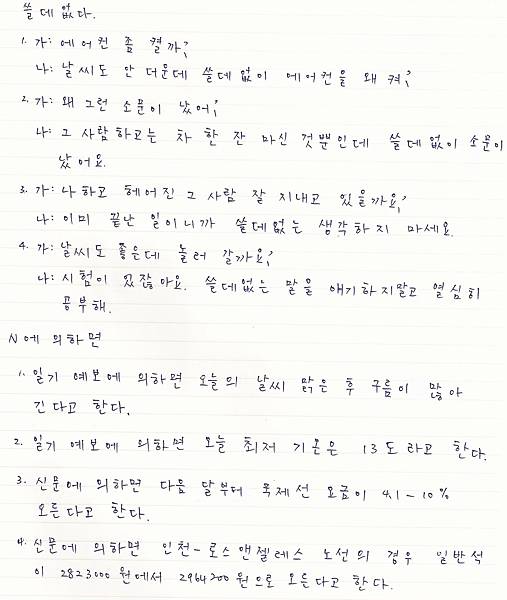 쓸데없다.
1. 가: 에어컨 좀 켤까?
나: 날씨도 안 더운데 쓸데없이 에어컨을 왜 켜?
2. 가: 왜 그런 소문이 났어?
나: 그 사람하고는 차 한 잔 마신 것뿐인데 쓸데없이 소문이
났어요.
3. 가: 나하고 헤어진 그 사람 잘 지내고 있을까요?
나: 이미 끝난 일이니까 쓸데없는 생각하지 마세요.
4. 가: 날씨도 좋은데 놀러 갈까요?
나: 시험이 있잖아요. 쓸데없는 말을 얘기하지말고 열심히
공부해.
N에 의하면
1. 일기 예보에 의하면 오늘의 날씨 맑은 후 구름이 많아
진다고 한다.
2. 일기 예보에 의하면 오늘 최저 기온은 13도라고 한다.
3. 신문에 의하면 다음 달부터 국제선 요금이 4.1-10%
오른다고 한다.
4. 신문에 의하면 인천-로스앤젤레스 노선의 경우 일반석
이 2823000원에서 2964200원으로 오른다고 한다.